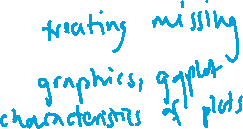 treating missing
graphics, ggplot
characteristics of plots